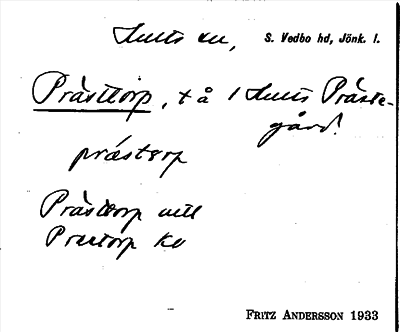 Hults sn, S. Vedbo hd, Jönk. l.
Prästtorp, t å 1 Hults Präste-
gård.
prástorp
Prästtorp
Prestorp
FRITZ ANDERSSON 1933